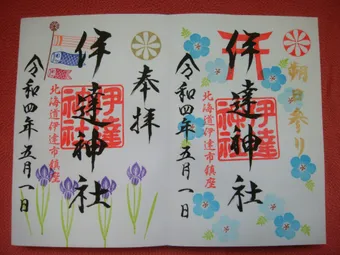 朔日参り
伊達神社
伊達神社
北海道伊達市鎮座
令和四年五月一日
奉拝
伊達神社
伊達神社
北海道伊達市鎮座
令和四年五月一日